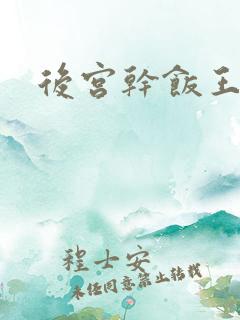 後宮幹飯王
程士安
未经同意禁止转载